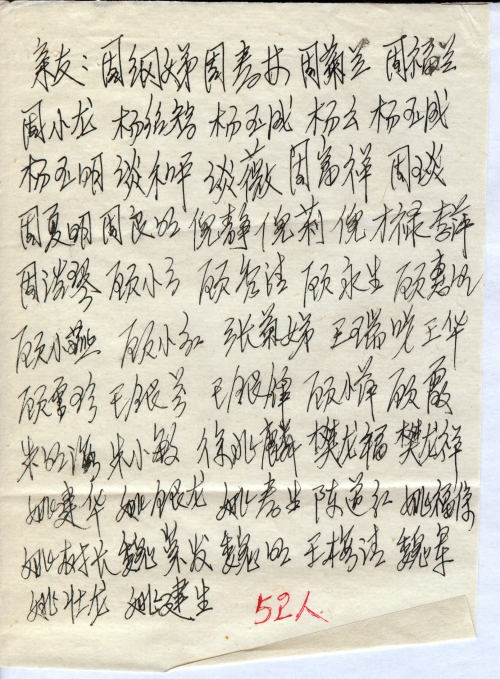 亲友：周纲娣 周春林 周菊兰 周福兰
周小龙 杨纪智 杨玉成 杨云 杨玉成
杨玉明 谈和平 谈薇 周富祥 周琰
周夏明 周良明 倪静 倪莉 倪才禄 李萍
周浩琴 顾小 顾 洁 顾永生 顾惠明
顾小燕 顾小红 张菊娣 王瑞 王华
顾雪珍 王银芬 王银锋 顾小萍 顾霞
朱明海 朱小敏 徐兆麟 樊龙福 樊龙祥
姚建华 姚银龙 姚春生 陈道红 姚福保
姚 长 魏荣发 魏明 王梅洁 魏
姚壮龙 姚建生 52人